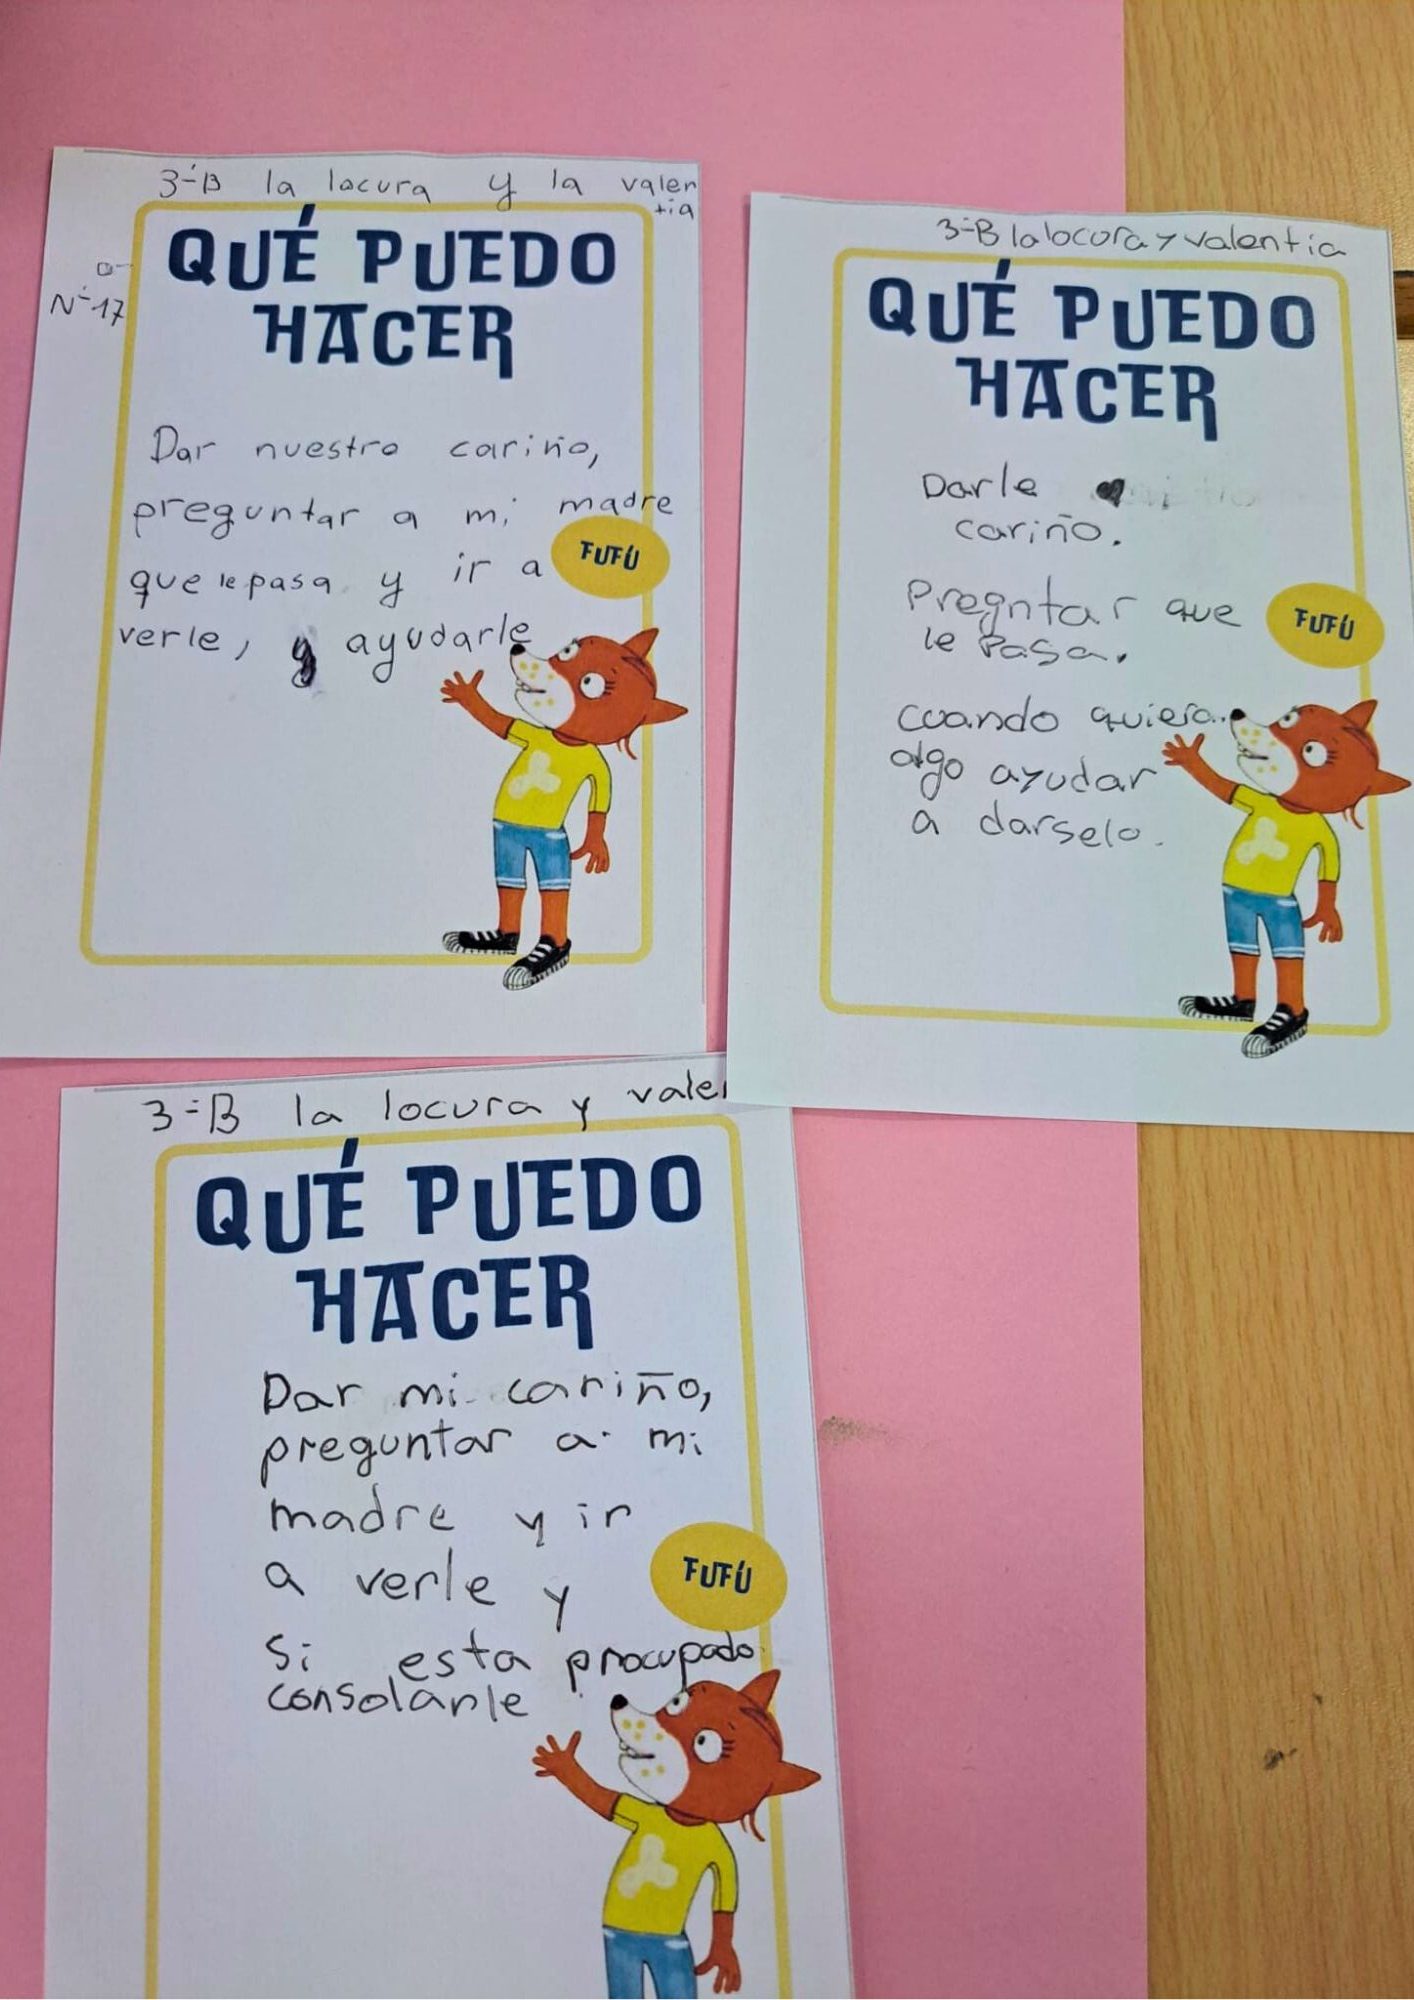 3º-B la locura y la valen
tia
Nº 17
QUÉ PUEDO
HACER
Dar nuestro cariño,
preguntar a mi madre
que le pasa y ir a
verle, y ayudarle
FUFÚ
3º-B la locura y valentia
QUÉ PUEDO
HACER
Darle
cariño.
Pregntar que
le Pasa.
cuando quiera
algo ayudar
a darselo.
FUFÚ
3º-B la locura y valen
QUÉ PUEDO
HACER
Dar mi cariño,
preguntar a mi
madre y ir
a verle y
si esta procupado
consolarle
FUFÚ